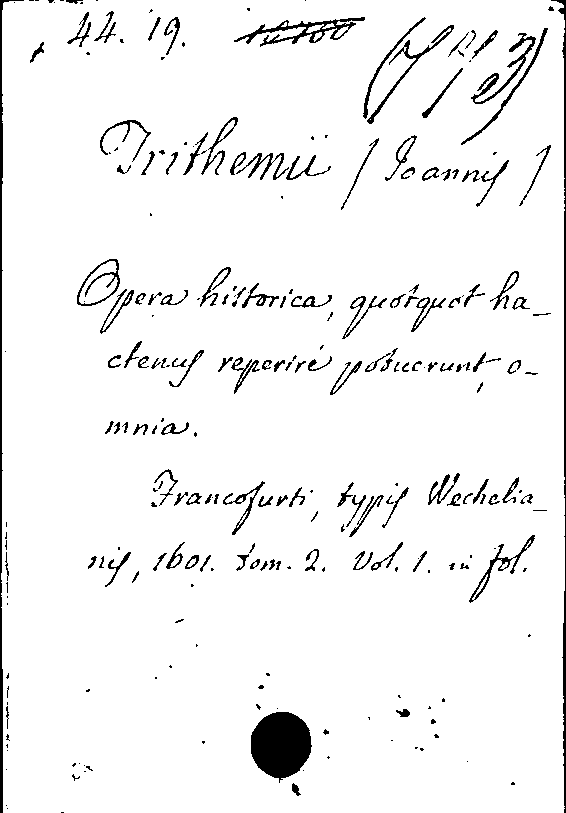 44. 19.
Trithemii / Ioannis /
Opera historica, quotquot ha_
ctenus reperire potuerunt, o-
mnia.
Francofurti, typis Wechelia_
nis, 1601. tom. 2. Vol. 1. in fol.